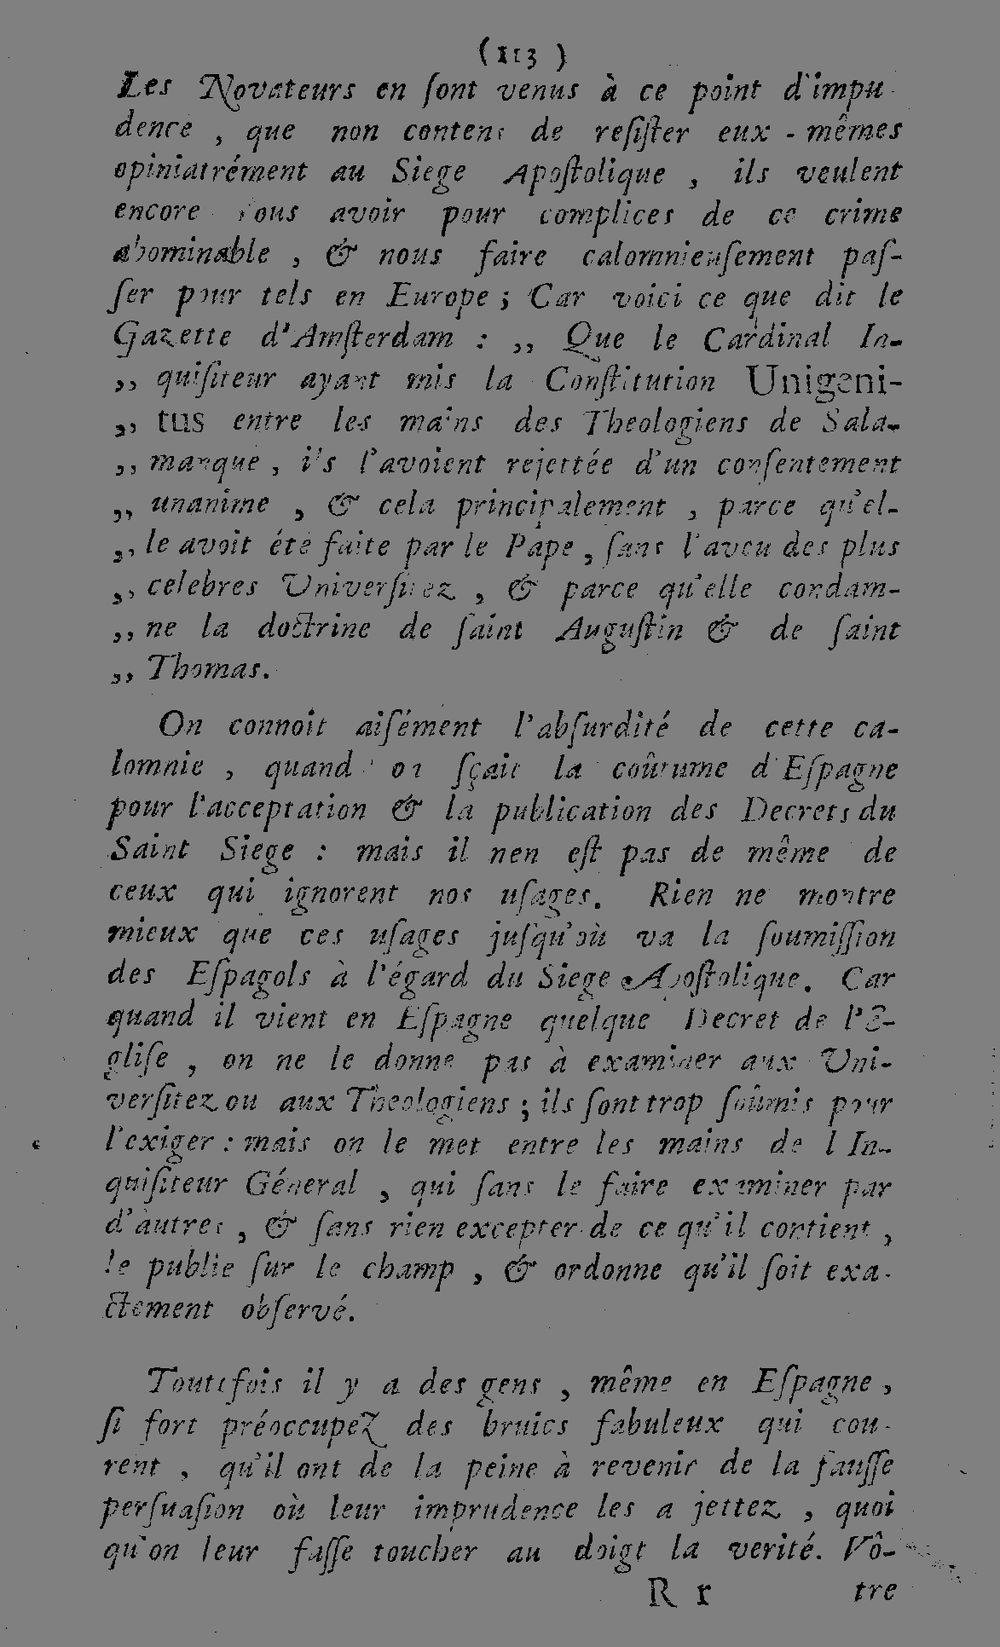 (113)
Les Novateurs en ſont venus à ce point d'impu-
dence, que non contens de reſiſter eux-mêmes
opiniatrément au Siege Apoſtolique, ils veulent
encore nous avoir pour complices de ce crime
abominable, & nous faire calomnieuſement paſ-
ſer pour tels en Europe; Car voici ce que dit le
Gazette d'Amſterdam: ,, Que le Cardinal In-
,, quiſiteur ayant mis la Conſtitution Unigeni-
,, tus entre les mains des Theologiens de Sala-
,, manque, ils l'avoient rejettée d'un conſentement
,, unanime, & cela principalement, parce qu'el-
,, le avoit été faite par le Pape, ſans l'aveu des plus
,, celebres Univerſitez, & parce qu'elle condam-
,, ne la doctrine de ſaint Auguſtin & de ſaint
,, Thomas.
On connoit aiſément l'abſurdité de cette ca-
lomnie, quand on ſçait la coûtume d'Eſpagne
pour l'acceptation & la publication des Decrets du
Saint Siege: mais il nen eſt pas de même de
ceux qui ignorent nos uſages. Rien ne montre
mieux que ces uſages juſqu'où va la ſoumiſſion
des Eſpagols à l'égard du Siege Apoſtolique. Car
quand il vient en Eſpagne quelque Decret de l'E-
gliſe, on ne le donne pas à examiner aux Uni-
verſitez ou aux Theologiens; ils ſont trop ſoûmis pour
l'exiger: mais on le met entre les mains de l'In-
quiſiteur Géneral, qui ſans le faire examiner par
d'autres, & ſans rien excepter de ce qu'il contient,
le publie ſur le champ, & ordonne qu'il ſoit exa-
ctement obſervé.
Toutefois il y a des gens, même en Eſpagne,
ſi fort préoccupez des bruics fabuleux qui cou-
rent, qu'il ont de la peine à revenir de la fauſſe
perſuaſion où leur imprudence les a jettez, quoi
qu'on leur faſſe toucher au doigt la verité. Vô-
R r tre